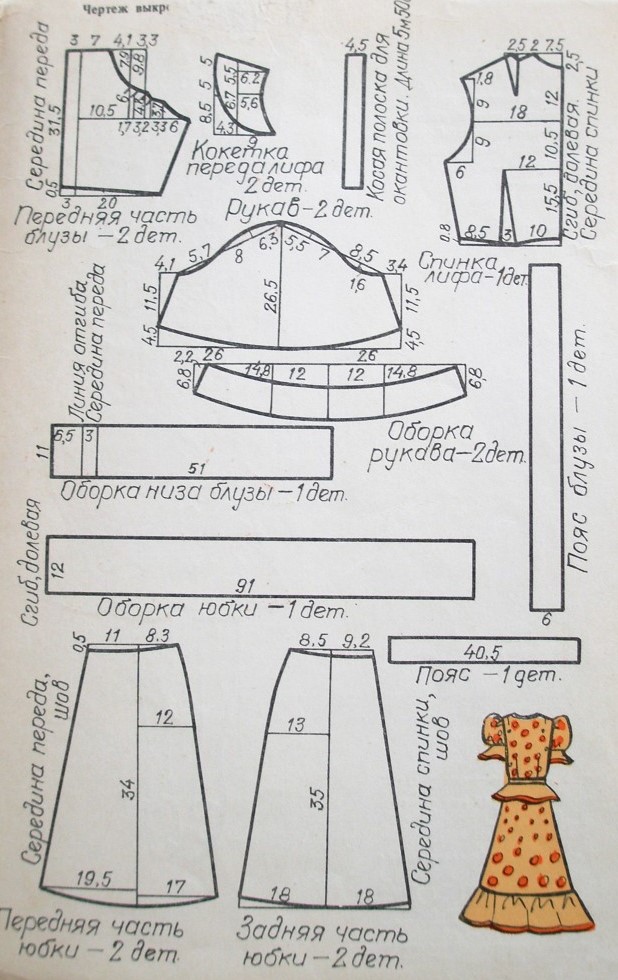 Чертеж выкр
3 7 4,1 3,3
Середина переда
31,5
0,5
7,9
9,8
10,5
1,7 3,2 3,3 6
3 20
Передняя часть
блузы — 2 дет.
5 5
8,5
5,5
6,2
6,7
5,6
4,3
9
Кокетка
переда лифа
2 дет.
4,5
Косая полоска для
окантовки. Длина 5м50
2,5 2 7,5
2,5
1,8
9
12
18
9
10,5
6
12
15,5
0,8
8,5 3 10
Сгиб, долевая.
Середина спинки
Спинка
лифа — 1 дет.
Рукав — 2 дет.
4,1 5,7 8 6,3 5,5 7 8,5 3,4
1,6
11,5
26,5
11,5
4,5
4,5
2,2 26 26
6,8
14,8 12 12 14,8
6,8
Оборка
рукава — 2 дет.
Линия отгиба
Середина переда
11
6,5 3
51
Оборка низа блузы — 1 дет.
Пояс блузы — 1 дет.
6
Сгиб, долевая
12
91
Оборка юбки — 1 дет.
40,5
Пояс — 1 дет.
0,5
11 8.3
Середина переда,
шов
12
34
19,5
17
Передняя часть
юбки — 2 дет.
8,5 9,2
13
35
18 18
Середина спинки,
шов
Задняя часть
юбки — 2 дет.